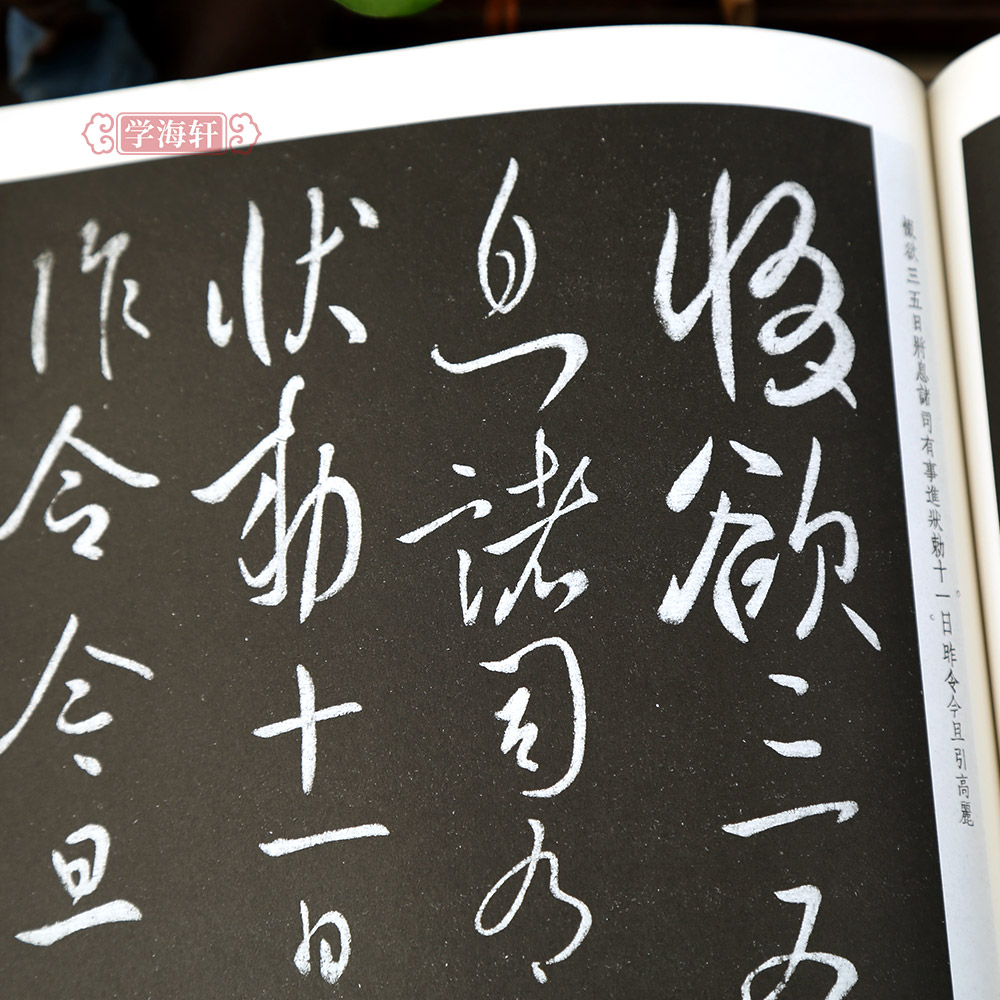 学海轩
欲三五
息諸司有
狀勅十一日
昨令今旦
欲三五日將息諸司有事進狀勅。十一日。昨令今旦引高麗